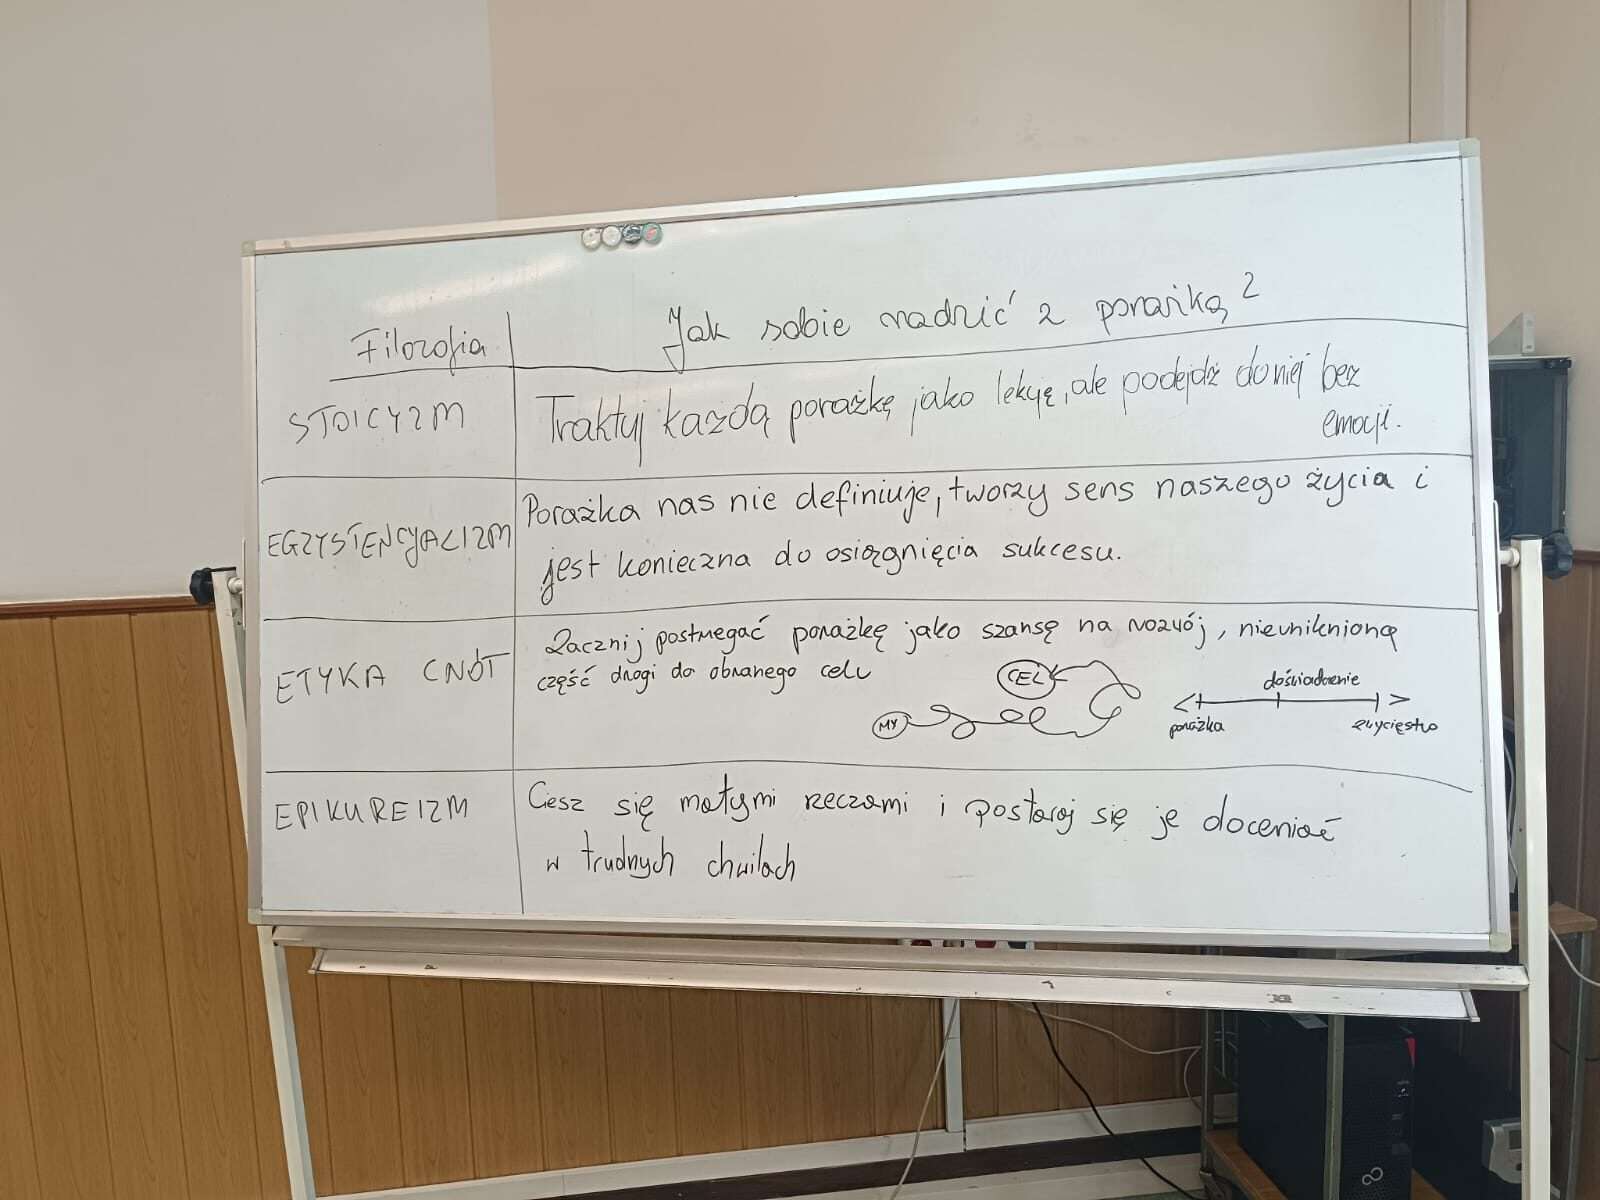 Filozofia
Jak sobie radzić z porażką?
STOICYZM
Traktuj każdą porażkę jako lekcję, ale podejdź do niej bez
emocji.
EGZYSTENCJALIZM
Porażka nas nie definiuje, tworzy sens naszego życia i
jest konieczna do osiągnięcia sukcesu.
ETYKA CNÓT
Zacznij postrzegać porażkę jako szansę na rozwój, nieuniknioną
część drogi do obranego celu
MY
CEL
doświadczenie
porażka
zwycięstwo
EPIKUREIZM
Ciesz się małymi rzeczami i postaraj się je doceniać
w trudnych chwilach